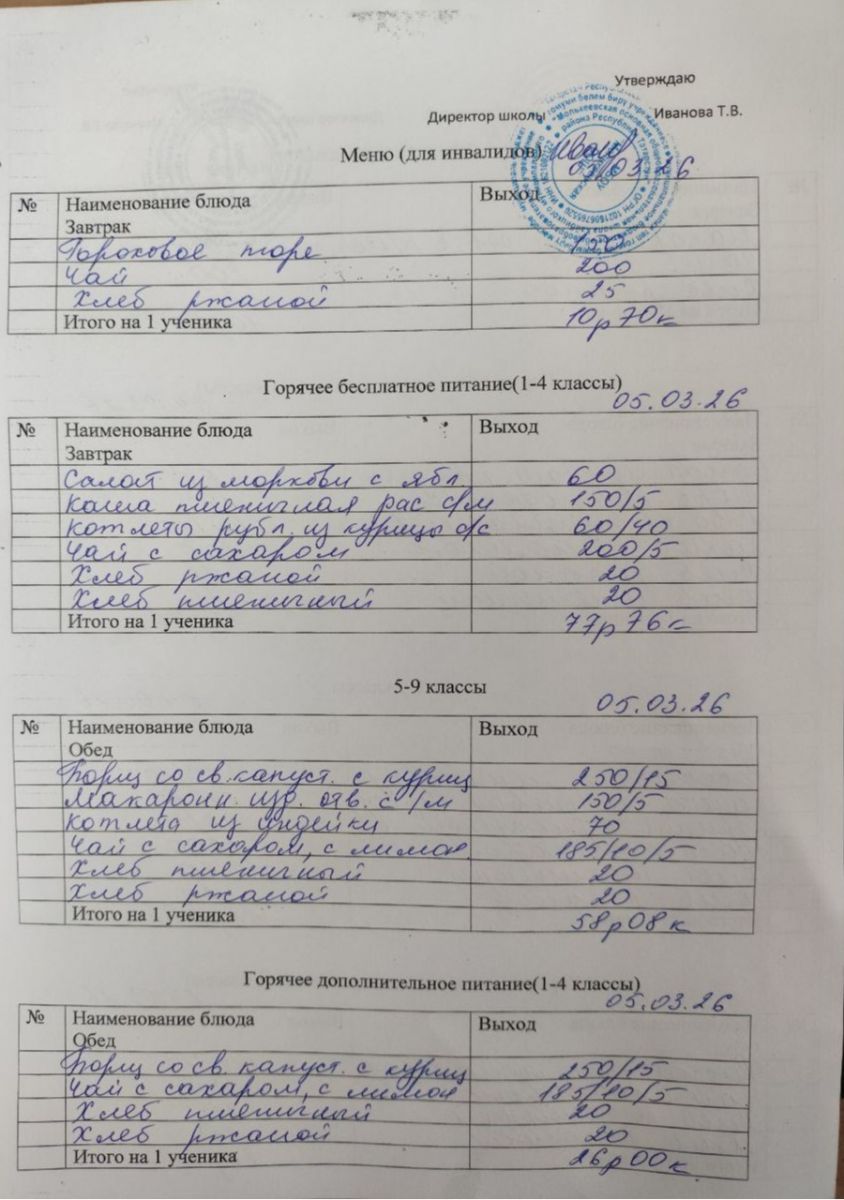 Утверждаю
Директор школы Иванова Т.В.
Меню (для инвалидов)
05.03.26
№ Наименование блюда Выход
Завтрак
Гороховое пюре
Чай 200
Хлеб ржаной 25
Итого на 1 ученика 10р 70к
Горячее бесплатное питание(1-4 классы)
05.03.26
№ Наименование блюда Выход
Завтрак
Салат из моркови с ябл. 60
Каша пшеничная рас с/м 150/5
Котлеты рубл. из курицы с/с 60/40
Чай с сахаром 200/5
Хлеб ржаной 20
Хлеб пшеничный 20
Итого на 1 ученика 77р 76к
5-9 классы
05.03.26
№ Наименование блюда Выход
Обед
Борщ со св. капуст. с куриц 250/15
Макарон. изд. отв. с/м 150/5
Котлета из индейки 70
Чай с сахаром, с лимон. 185/10/5
Хлеб пшеничный 20
Хлеб ржаной 20
Итого на 1 ученика 58р 08к
Горячее дополнительное питание(1-4 классы)
05.03.26
№ Наименование блюда Выход
Обед
Борщ со св. капуст. с куриц 250/15
Чай с сахаром, с лимон 185/10/5
Хлеб пшеничный 20
Хлеб ржаной 20
Итого на 1 ученика 26р 00к